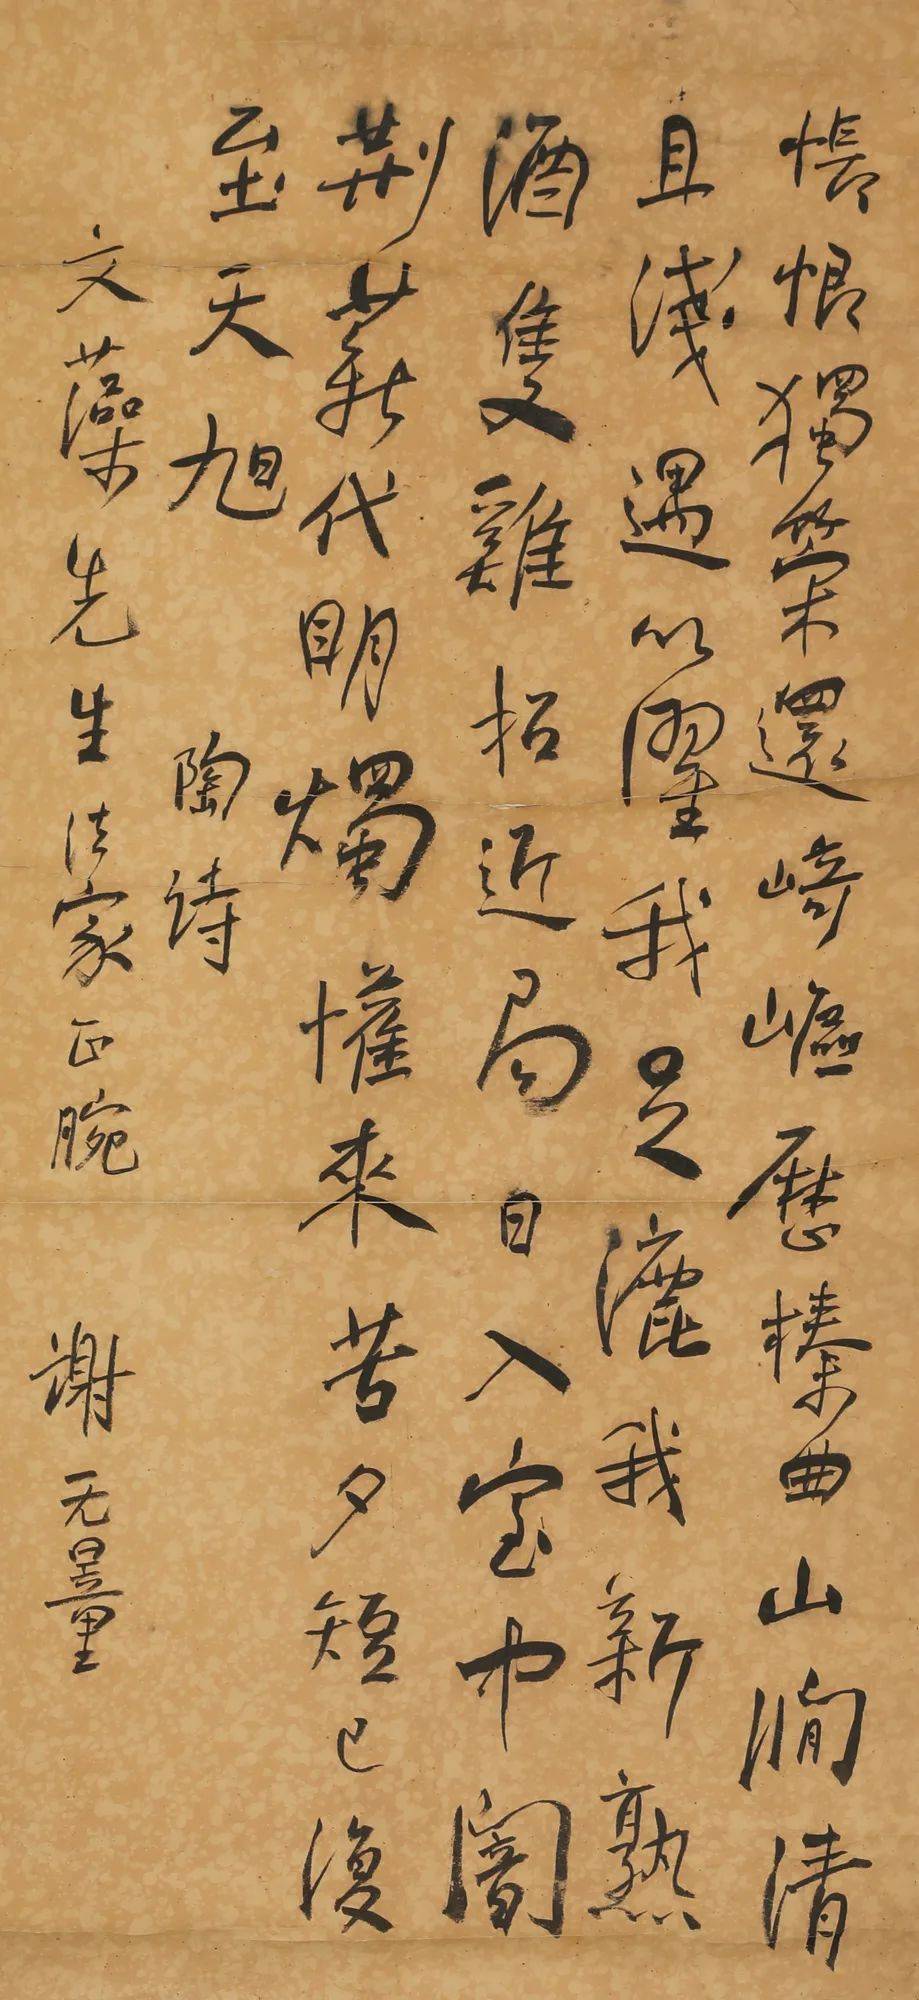 悵恨獨策還崎嶇歷榛曲山澗清
且淺遇以濯我足漉我新熟
酒隻雞招近局日入室中闇
荆薪代明燭懽來苦夕短已復
至天旭
陶詩
文藻先生法家正腕
謝无量